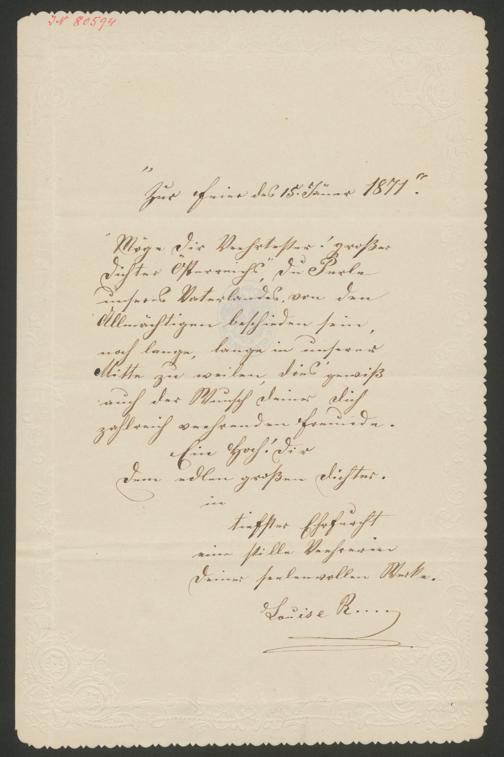 IN 80594
"Zur Feier des 15. Jäner 1871".
"Möge Dir Verehrtester! großer
Dichter Österreichs," Du Perle
unseres Vaterlandes, von den
Allmächtigen beschieden sein,
noch lange, lange in unserer
Mitte zu weilen, dies gewiß
auch der Wunsch deiner dich
zahlreich verehrenden Freunde.
Ein Hoch! Dir
dem edlen großen Dichter.
in
tiefster Ehrfurcht
eine stille Verehrerin
Deiner seelenvollen Werke.
Louise R....